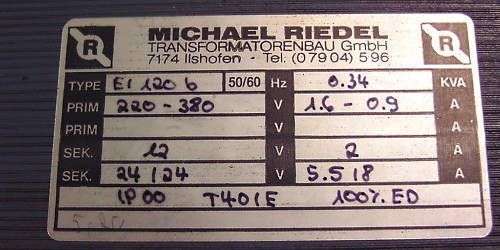 MICHAEL RIEDEL
TRANSFORMATORENBAU GmbH
7174 Ilshofen · Tel. (0 79 04) 5 96
R R
TYPE EI 120 b 50/60 Hz 0.34 KVA
PRIM 220 - 380 V 1.6 - 0.9 A
PRIM V A
SEK. 12 V 2 A
SEK. 24 / 24 V 5.5 / 8 A
IP 00 T40/E 100% ED